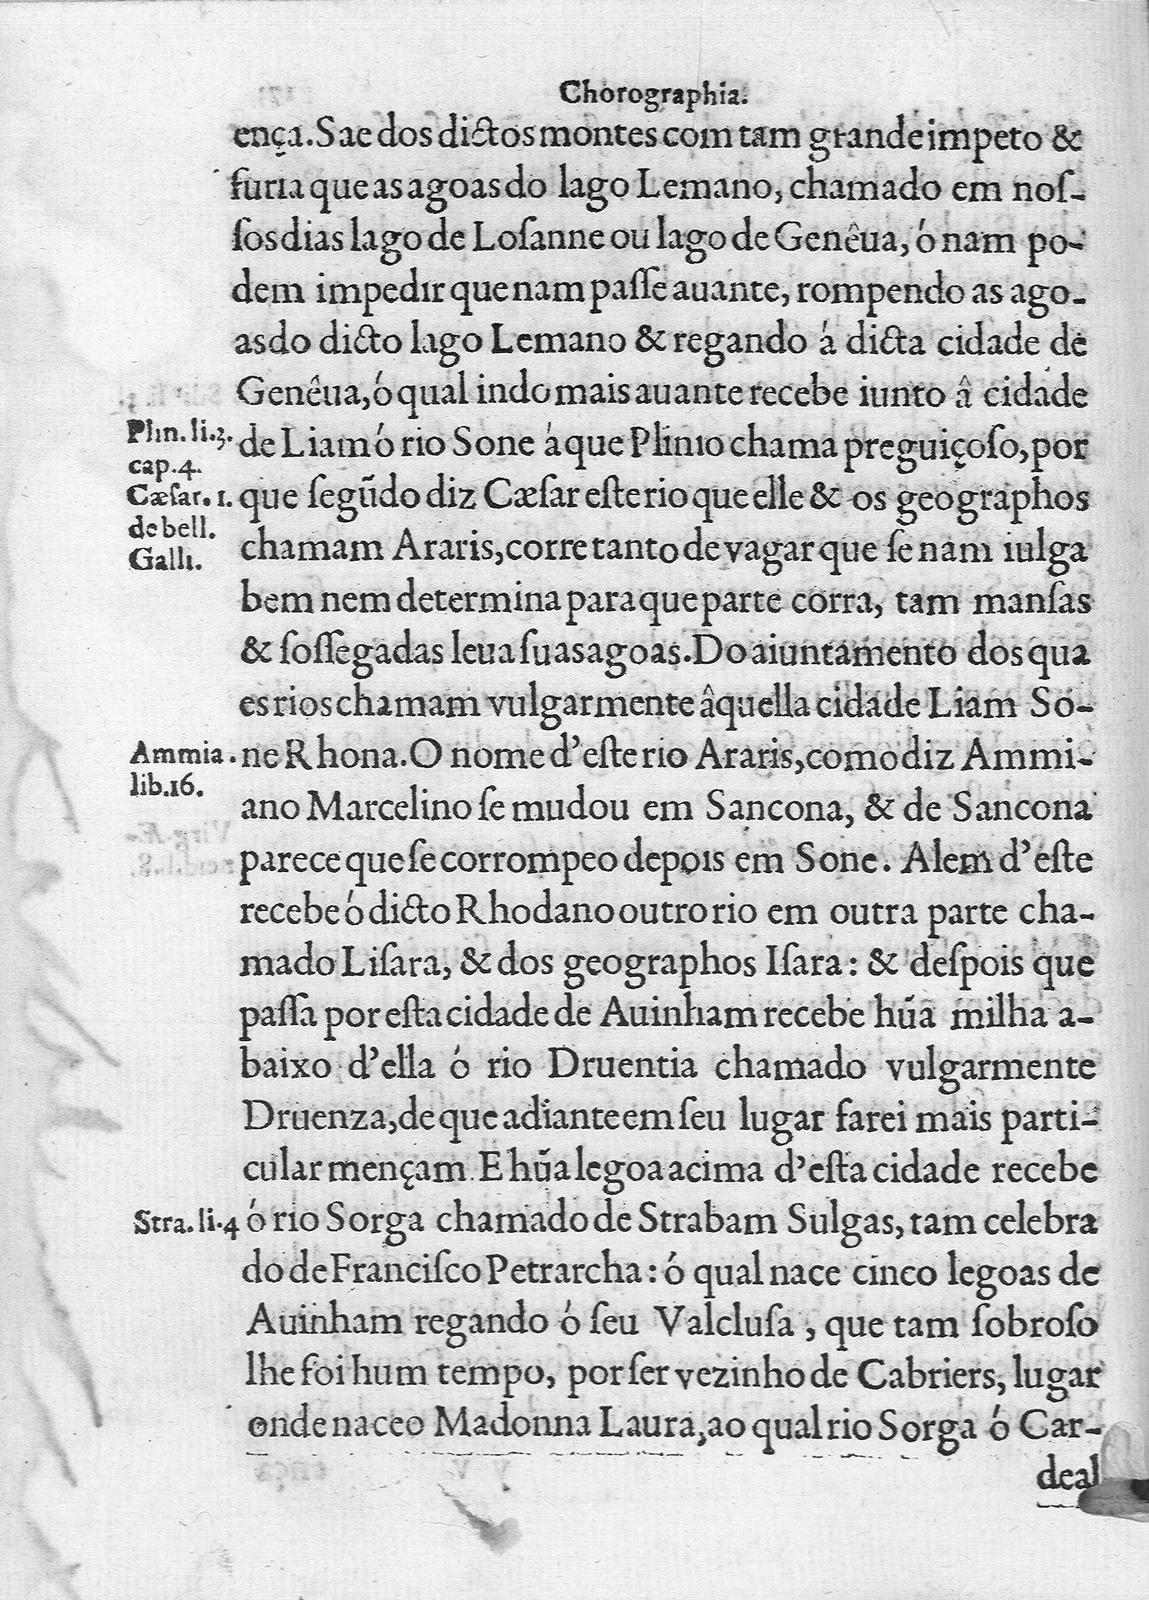 Chorographia.
ença. Sae dos dictos montes com tam grande impeto &
furia que as agoas do lago Lemano, chamado em noſ-
ſos dias lago de Loſanne ou lago de Genêua, ó nam po-
dem impedir que nam paſſe auante, rompendo as ago-
as do dicto lago Lemano & regando á dicta cidade de
Genêua, ó qual indo mais auante recebe iunto â cidade
Plin. li.3.
cap.4.
de Liam ó rio Sone á que Plinio chama preguiçoſo, por
Cæſar. 1.
de bell.
Galli.
que ſegũdo diz Cæſar eſte rio que elle & os geographos
chamam Araris, corre tanto de vagar que ſe nam iulga
bem nem determina para que parte corra, tam manſas
& ſoſſegadas leua ſuas agoas. Do aiuntamento dos qua
es rios chamam vulgarmente âquella cidade Liam Só-
Ammia.
lib.16.
ne Rhona. O nome d'eſte rio Araris, como diz Ammi-
ano Marcelino ſe mudou em Sancona, & de Sancona
parece que ſe corrompeo depois em Sone. Alem d'eſte
recebe ó dicto Rhodano outro rio em outra parte cha-
mado Liſara, & dos geographos Iſara: & deſpois que
paſſa por eſta cidade de Auinham recebe hũa milha a-
baixo d'ella ó rio Druentia chamado vulgarmente
Druenza, de que adiante em ſeu lugar farei mais parti-
cular mençam. E hũa legoa acima d'eſta cidade recebe
Stra. li.4
ó rio Sorga chamado de Strabam Sulgas, tam celebra
do de Franciſco Petrarcha: ó qual nace cinco legoas de
Auinham regando ó ſeu Valcluſa, que tam ſobroſo
lhe foi hum tempo, por ſer vezinho de Cabriers, lugar
onde naceo Madonna Laura, ao qual rio Sorga ó Car-
deal